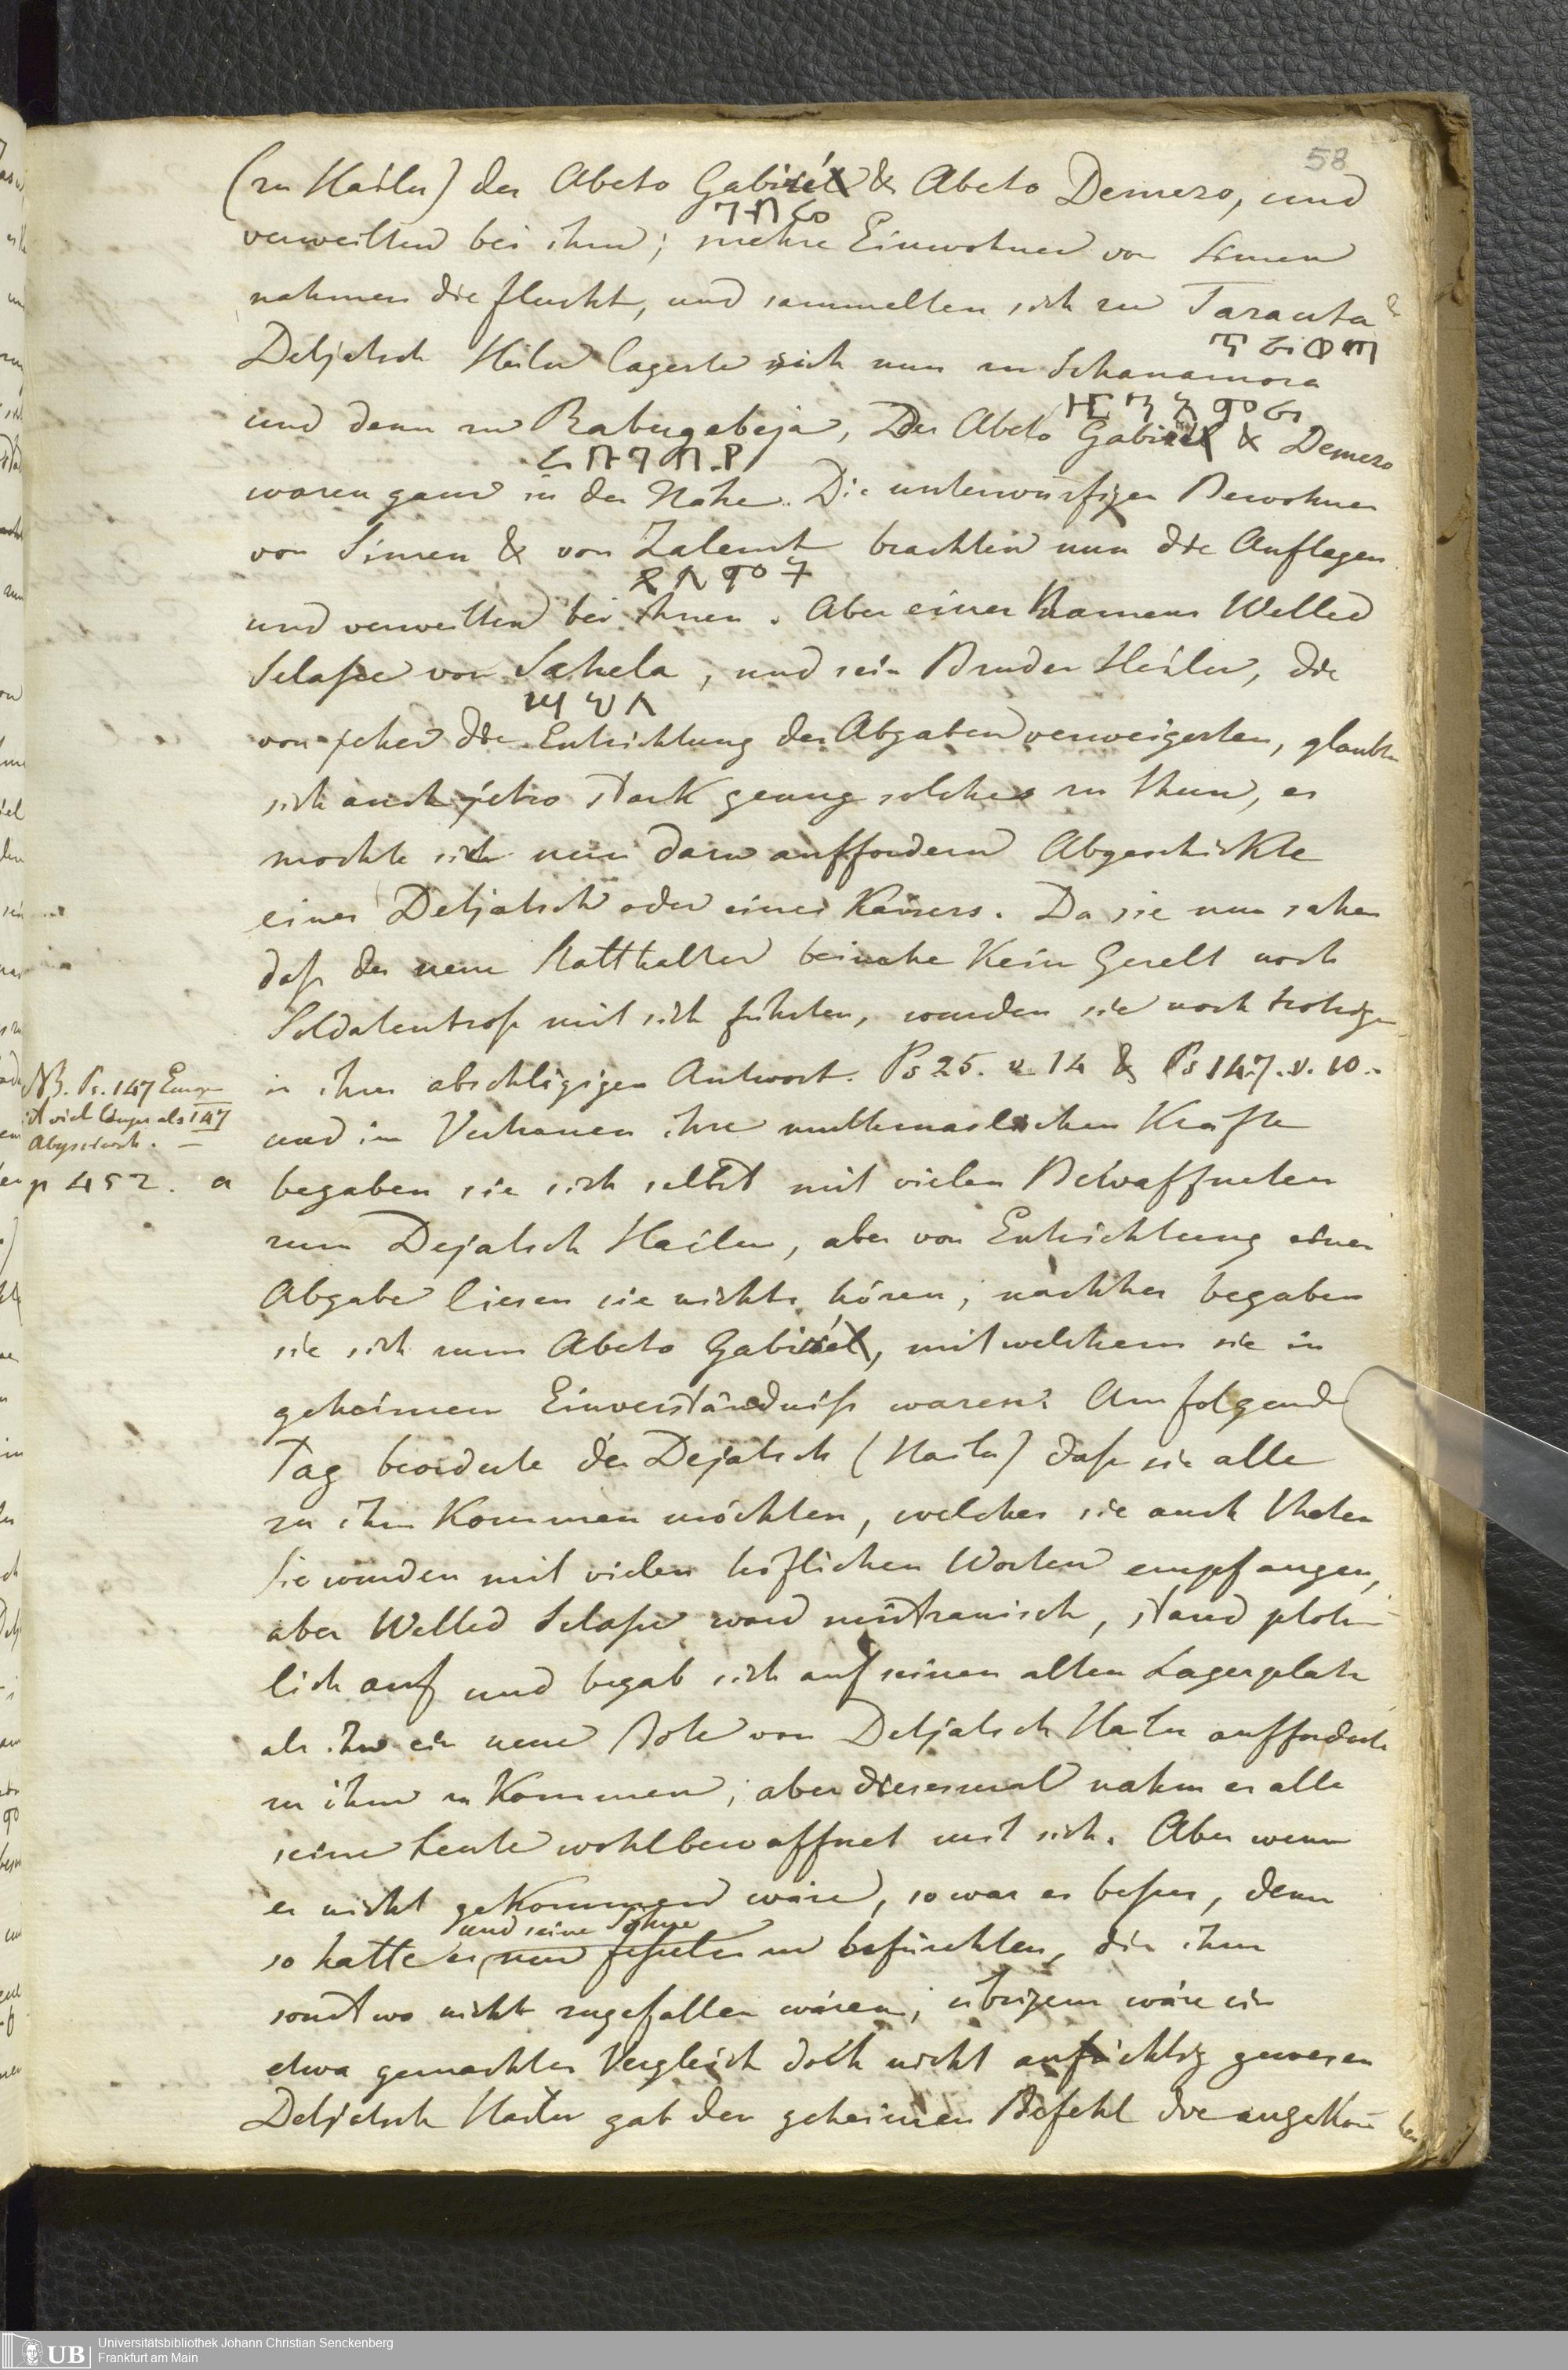 58
(zu Hailu) der Abeto Gabriél & Abeto Demezo, und
ገብረ
verweilten bei ihm; mehre Einwohner von Simen
nahmen die flucht, und sammelten sich zu Tarauta
ጣራውጣ
Detjatsch Hailu lagerte sich nun zu Schanamora
und denn zu Rabugebeja, Der Abeto Gabriél & Demezo
ራቡገቢያ
waren ganz in der Nähe. Die unterwürfigen Bewohner
von Simen & von Zalemt brachten nun die Auflagen
ጸለምት
und verweilten bei ihnen. Aber einer Namens Welled
Selaſse von Sahela, und sein Bruder Hailu, die
ሣህለ
von jeher die Entrichtung der Abgaben verweigerten, glaubten
sich auch jetzo stark genug solches zu thun, es
mochte sich nun dazu auffordern Abgeschickte
eines Detjatsch oder eines Kaisers. Da sie nun sahen
daſs der neue Statthalter beinahe Kein Gezelt noch
Soldatentroſs mit sich führten, wurden sie noch trotziger
in ihrer abschlägigen Antwort. Ps 25. v. 14 & Ps 147. v. 10..
NB. Ps. 147 Europ
ist viel länger als 147
Abyssinisch. —
und im Vertrauen ihre muthmaslichen Kräfte
p 452. a
begaben sie sich selbst mit vielen Bewaffneten
zum Dejatsch Hailu, aber von Entrichtung einer
Abgabe liesen sie nichts hören, nachher begaben
sie sich zum Abeto Gabriél, mit welchem sie in
geheimen Einverständniſs waren. Am folgenden
Tag beorderte der Dejatsch (Hailu) daſs sie alle
zu ihm Kommen möchten, welches sie auch thaten
Sie wurden mit vielen höflichen Worten empfangen,
aber Welled Selaſse ward mistrauisch, stand plötz-
lich auf und begab sich auf seinen alten Lagerplatz
als ihn ein neuer Bote von Detjatsch Hailu aufforderte
zu ihm zu Kommen; aber diesesmal nahm er alle
seine Leute wohlbewaffnet mit sich. Aber wenn
er nicht geKommen wäre, so war es beſser, denn
und seine Söhne
so hatte er nun zu befürchten, die ihm
sonst wo nicht zugefallen wären; übrigens wäre ein
etwa gemachter Vergleich doch nicht aufrichtig gewesen
Detjatsch Hailu gab den geheimen Befehl die angeKom
Universitätsbibliothek Johann Christian Senckenberg
Frankfurt am Main
UB